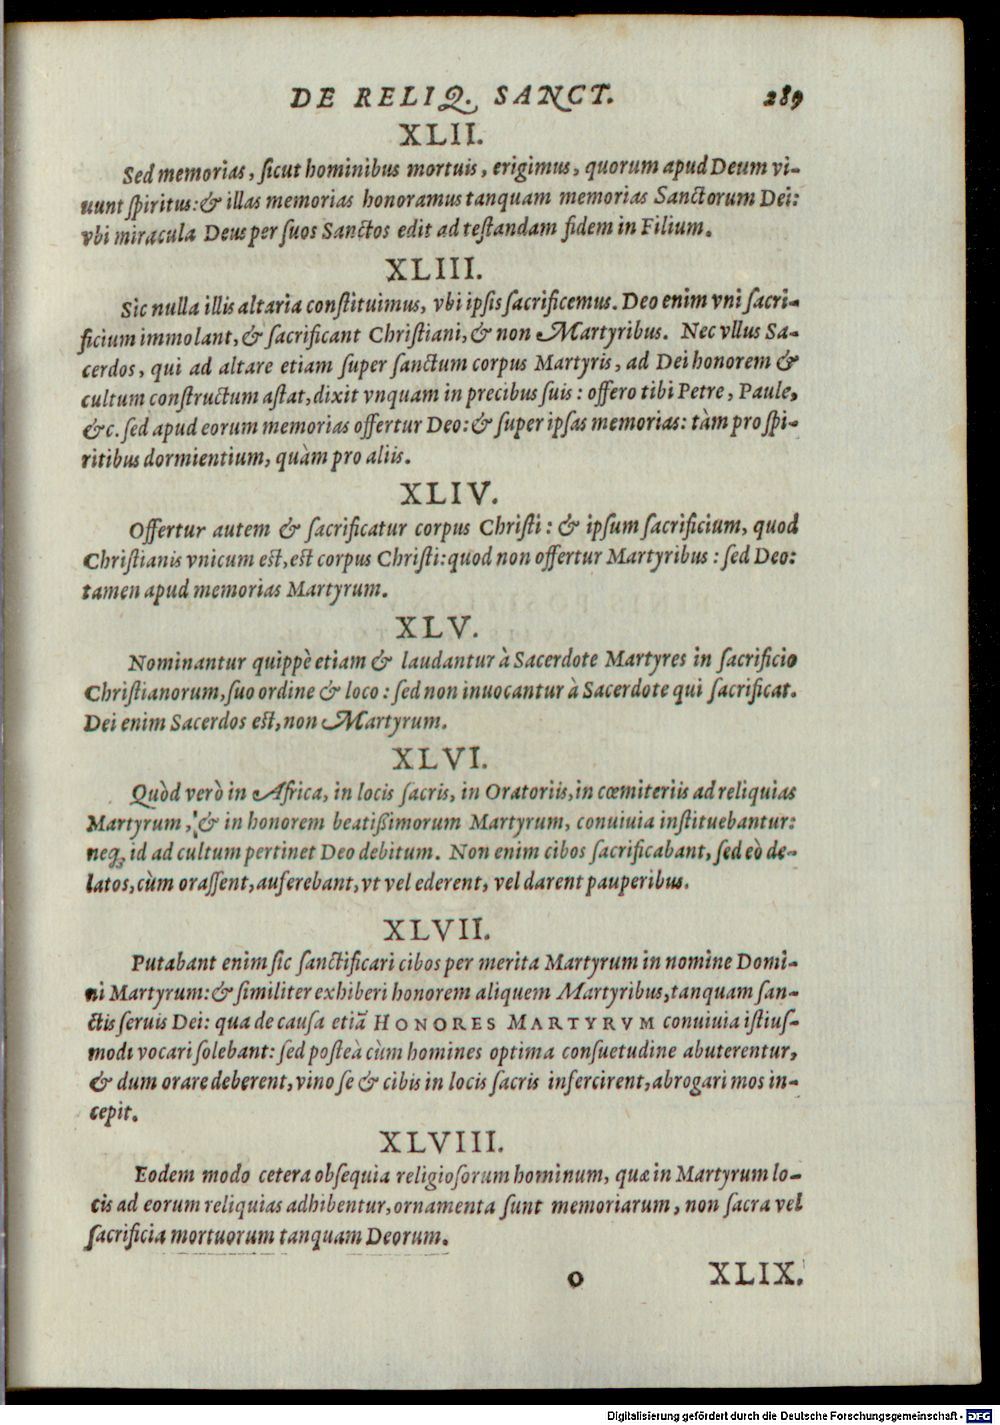 DE RELIQ. SANCT. 289
XLII.
Sed memorias, ſicut hominibus mortuis, erigimus, quorum apud Deum vi-
uunt ſpiritus: & illas memorias honoramus tanquam memorias Sanctorum Dei:
vbi miracula Deus per ſuos Sanctos edit ad teſtandam fidem in Filium.
XLIII.
Sic nulla illis altaria conſtituimus, vbi ipſis ſacrificemus. Deo enim vni ſacri-
ficium immolant, & ſacrificant Chriſtiani, & non Martyribus. Nec vllus Sa-
cerdos, qui ad altare etiam ſuper ſanctum corpus Martyris, ad Dei honorem &
cultum conſtructum aſtat, dixit vnquam in precibus ſuis: offero tibi Petre, Paule,
&c. ſed apud eorum memorias offertur Deo: & ſuper ipſas memorias: tàm pro ſpi-
ritibus dormientium, quàm pro aliis.
XLIV.
Offertur autem & ſacrificatur corpus Chriſti: & ipſum ſacrificium, quod
Chriſtianis vnicum eſt, eſt corpus Chriſti: quod non offertur Martyribus: ſed Deo:
tamen apud memorias Martyrum.
XLV.
Nominantur quippè etiam & laudantur à Sacerdote Martyres in ſacrificio
Chriſtianorum, ſuo ordine & loco: ſed non inuocantur à Sacerdote qui ſacrificat.
Dei enim Sacerdos eſt, non Martyrum.
XLVI.
Quòd verò in Africa, in locis ſacris, in Oratoriis, in cœmiteriis ad reliquias
Martyrum, & in honorem beatißimorum Martyrum, conuiuia inſtituebantur:
neq; id ad cultum pertinet Deo debitum. Non enim cibos ſacrificabant, ſed eò de-
latos, cùm oraſſent, auferebant, vt vel ederent, vel darent pauperibus.
XLVII.
Putabant enim ſic ſanctificari cibos per merita Martyrum in nomine Domi-
ni Martyrum: & ſimiliter exhiberi honorem aliquem Martyribus, tanquam ſan-
ctis ſeruis Dei: qua de cauſa etiã HONORES MARTYRVM conuiuia iſtiuſ-
modi vocari ſolebant: ſed poſteà cùm homines optima conſuetudine abuterentur,
& dum orare deberent, vino ſe & cibis in locis ſacris infercirent, abrogari mos in-
cepit.
XLVIII.
Eodem modo cetera obſequia religioſorum hominum, quæ in Martyrum lo-
cis ad eorum reliquias adhibentur, ornamenta ſunt memoriarum, non ſacra vel
ſacrificia mortuorum tanquam Deorum.
o XLIX.
Digitalisierung gefördert durch die Deutsche Forschungsgemeinschaft - DFG